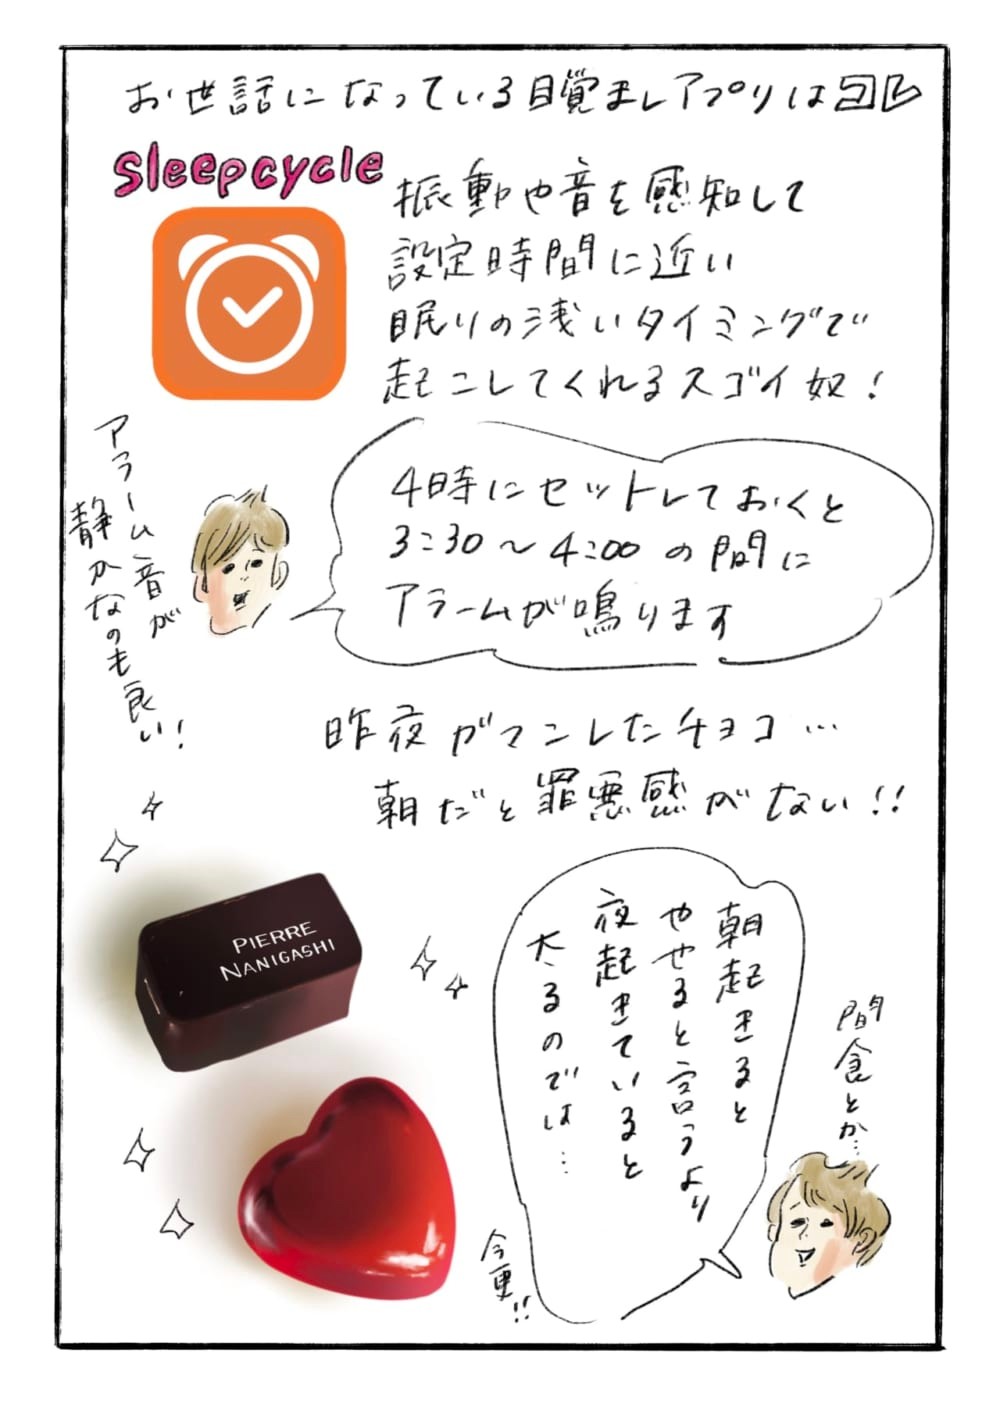 お世話になっている目覚ましアプリはコレ
sleepcycle
振動や音を感知して
設定時間に近い
眠りの浅いタイミングで
起こしてくれるスゴイ奴!
4時にセットしておくと
3:30〜4:00の間に
アラームが鳴ります
アラーム音が
静かなのも良い!
昨夜ガマンしたチョコ…
朝だと罪悪感がない!!
PIERRE
NANIGASHI
朝起きると
やせると言うより
夜起きていると
太るのでは…
間食とか…
今更!!